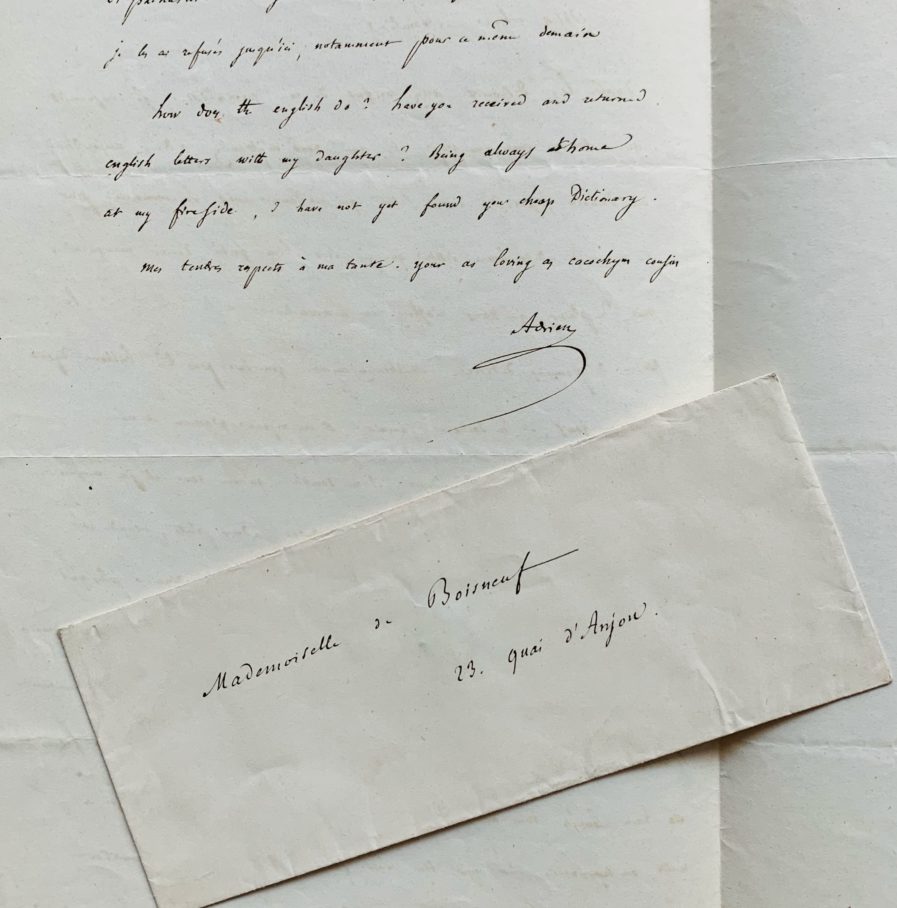 je les ai refusés jusqu'ici, notamment pour ce même demain
how doys the english do? have you received and returned
english letters with my daughter? Being always at home
at my fireside, I have not yet found your cheap Dictionary.
mes tendres respects à ma tante. your as loving as cacochym cousin
Adrien
Mademoiselle de Boisneuf
23. quai d'Anjou.